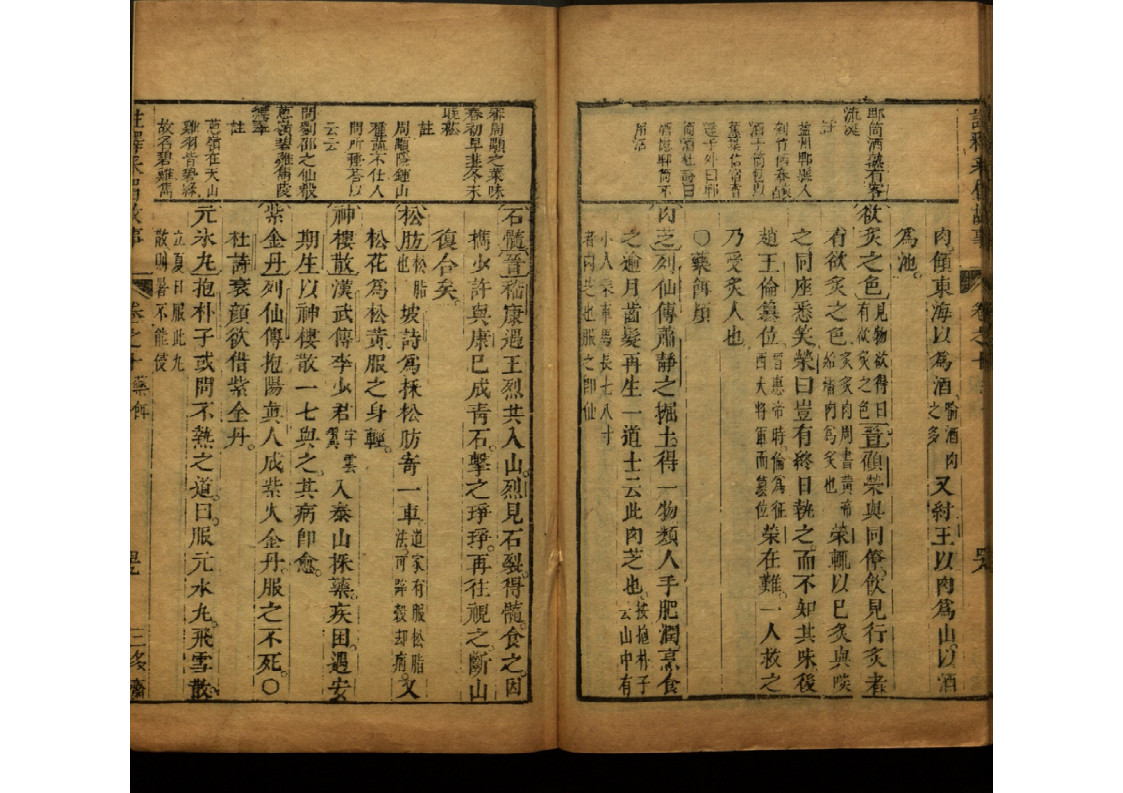 郫筒酒熱有客
流涎
註
益州郫縣人
刳竹傳春釀
酒于筒包以
蕉葉信宿香
達于外曰郫
筒酒杜詩曰
酒憶郫筒不
用沽
肉傾東海以為酒喻酒肉之多又紂王以肉為山以酒
為池
欲炙之色見物欲得曰有欲炙之色晉顧榮與同僚飲見行炙者
有欲炙之色炙炙肉周書黃帝始燔肉為炙也榮輒以己炙與啖
之同座悉笑榮曰豈有終日執之而不知其味後
趙王倫篡位晉惠帝時倫為征西大將軍而篡位榮在難一人救之
乃受炙人也
○藥餌類
肉芝列仙傳蕭靜之掘土得一物類人手肥潤烹食
之逾月齒髮再生一道士云此肉芝也按抱朴子云山中有
小人乘車馬長七八寸者肉芝也服之即仙
註釋采眉故事
卷之十
藥餌
三多齋
齊周顒之菜味
春初早韭冬末
晚菘
註
周顒隱鍾山
種蔬不仕人
問所種答以
云云
問劉郃之仙穀
蔥嶺碧雞雋陵
標孝
註
蔥嶺在天山
雞羽青勢絳
故名碧雞雋
石髓晉嵇康遇王烈共入山烈見石裂得髓食之因
攜少許與康已成青石擊之琤琤再往視之斷山
復合矣
松肪松脂也坡詩為採松肪寄一車道家有服松脂法可辟穀却病又
松花為松黃服之身輕
神樓散漢武傳李少君字雲翼入泰山採藥疾困遇安
期生以神樓散一七與之其病即愈
紫金丹列仙傳抱陽真人成紫火金丹服之不死○
杜詩衰顏欲借紫金丹
元氷丸抱朴子或問不熱之道曰服元氷丸飛雪散
立夏日服此丸散則暑不能侵